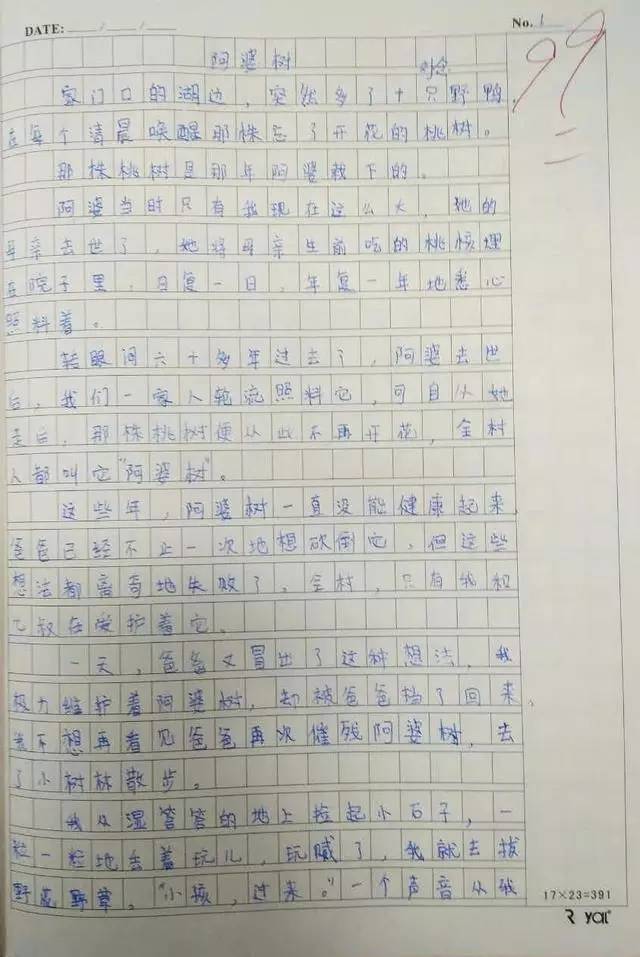 DATE: / /
No. 1
99
阿婆树
家门口的湖边，突然多了十只野鸭，
在每个清晨唤醒那株忘了开花的桃树。
那株桃树是那年阿婆栽下的。
阿婆当时只有我现在这么大，她的
母亲去世了，她将母亲生前吃的桃核埋
在院子里，日复一日，年复一年地悉心
照料着。
转眼间六十多年过去了，阿婆去世
后，我们一家人轮流照料它，可自从她
走后，那株桃树便从此不再开花，全村
人都叫它“阿婆树”。
这些年，阿婆树一直没能健康起来，
爸爸已经不止一次地想砍倒它，但这些
想法都离奇地失败了，全村，只有我和
七叔在爱护着它。
一天，爸爸又冒出了这种想法，我
极力维护着阿婆树，却被爸爸档了回来，
我不想再看见爸爸再次催残阿婆树，去
了小树林散步。
我从湿答答的地上捡起小石子，一
粒一粒地丢着玩儿，玩腻了，我就去拔
野花野草。“小孩，过来。”一个声音从我
17×23=391
Royal